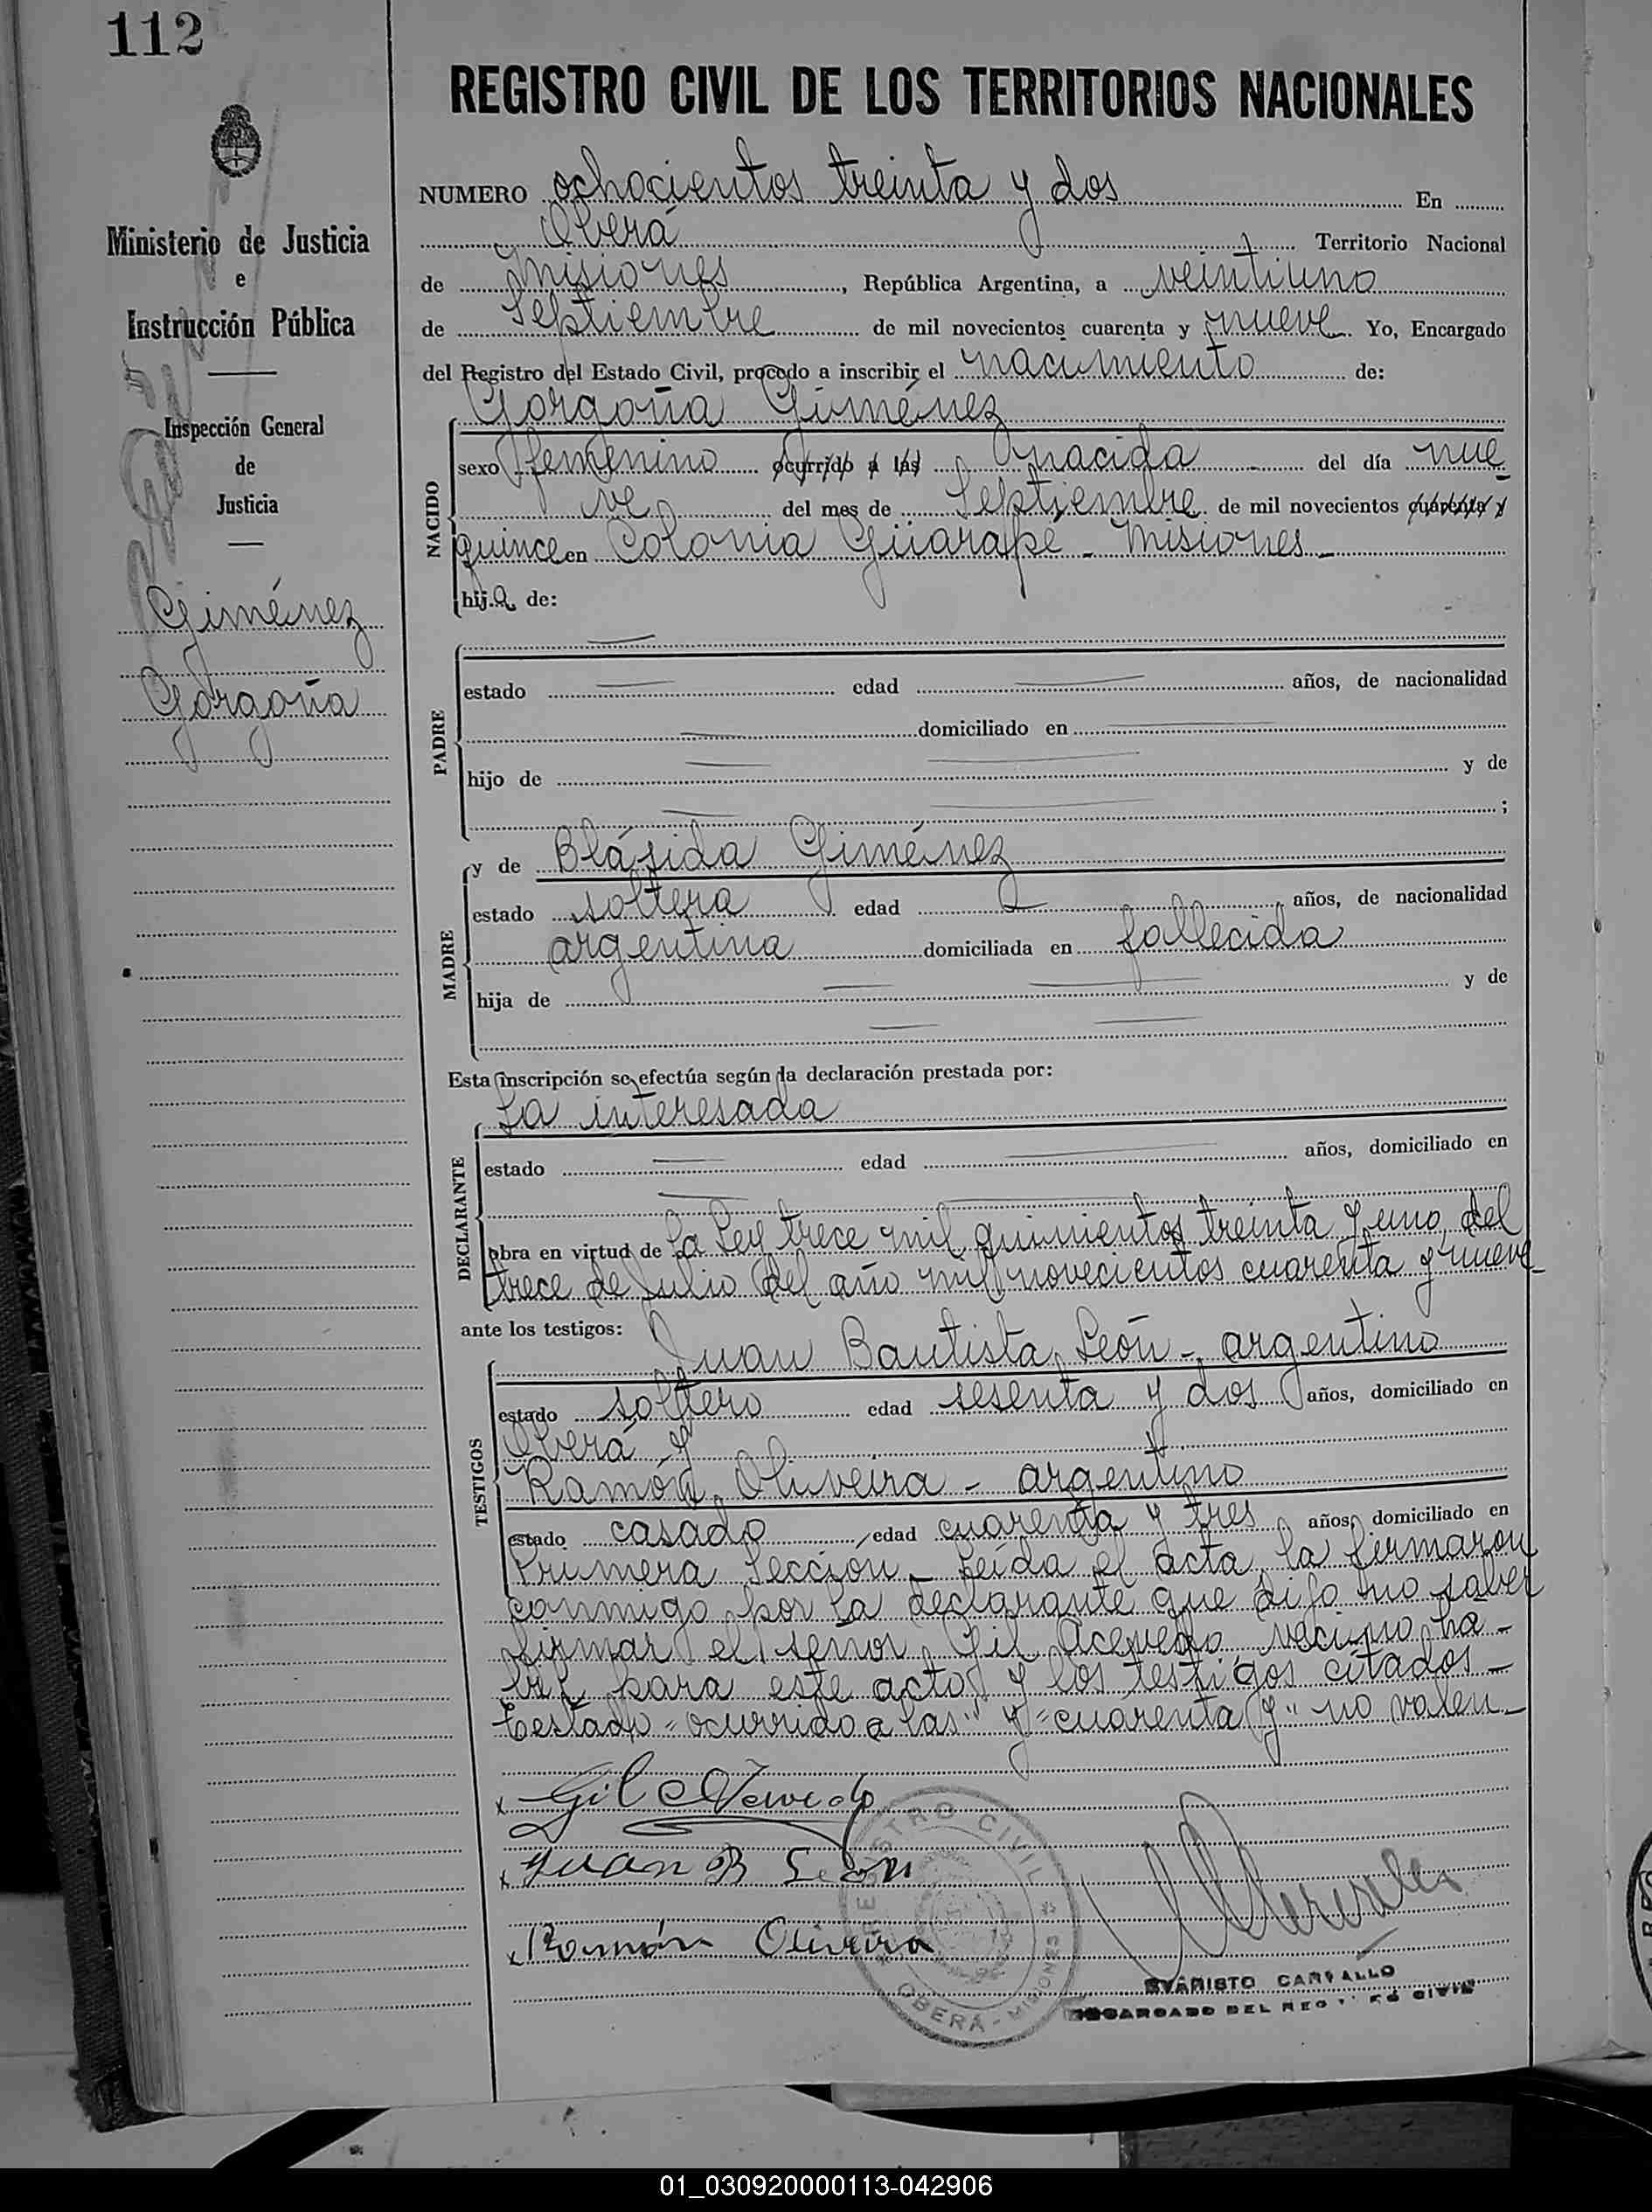 112
REGISTRO CIVIL DE LOS TERRITORIOS NACIONALES
Ministerio de Justicia
e
Instrucción Pública
Inspección General
de
Justicia
Giménez
Gorgoña
NUMERO ochocientos treinta y dos En
Oberá Territorio Nacional
de Misiones, República Argentina, a veintiuno
de Septiembre de mil novecientos cuarenta y nueve. Yo, Encargado
del Registro del Estado Civil, procedo a inscribir el nacimiento de:
Gorgoña Giménez
NACIDO
sexo femenino ocurrido a las nacida del día nue
ve del mes de Septiembre de mil novecientos cuarenta y
quince en Colonia Güarapé - Misiones -
hija de:
PADRE
estado edad años, de nacionalidad
domiciliado en
hijo de y de
;
MADRE
y de Blásida Giménez
estado soltera edad años, de nacionalidad
argentina domiciliada en fallecida
hija de y de
Esta inscripción se efectúa según la declaración prestada por:
La interesada
DECLARANTE
estado edad años, domiciliado en
obra en virtud de la Ley trece mil quinientos treinta y uno del
trece de Julio del año mil novecientos cuarenta y nueve
ante los testigos:
Juan Bautista León - argentino
TESTIGOS
estado soltero edad sesenta y dos años, domiciliado en
Oberá y
Ramón Oliveira - argentino
estado casado edad cuarenta y tres años, domiciliado en
Primera Sección - Leída el acta, la firmaron
conmigo por la declarante que dijo no saber
firmar el señor Gil Acevedo, vecino há-
bil para este acto y los testigos citados -
Testado "ocurrido a las" y "cuarenta y" no valen -
x Gil Acevedo
x Juan B León
x Ramón Oliveira
REGISTRO CIVIL
OBERÁ - MISIONES
EVARISTO CARVALLO
ENCARGADO DEL REGISTRO CIVIL
01_030920000113-042906